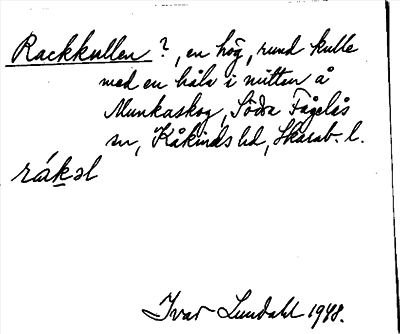 Rackkullen ?, en hög, rund kulle
med en håla i mitten å
Munkaskog, Södra Fågelås
sn, Kåkinds hd, Skarab. l.
rák̲əl
Ivar Lundahl 1948.